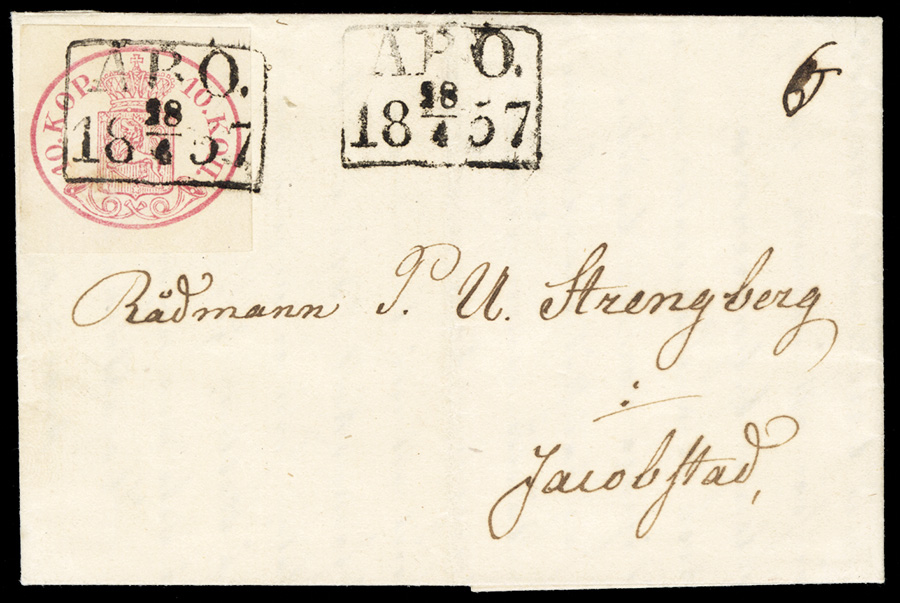 10. KOP. 10. КОП.
ÅBO.
18 18/4 57
ÅBO.
18 18/4 57
6
Rådmann P. U. Strengberg
i
Jacobstad,